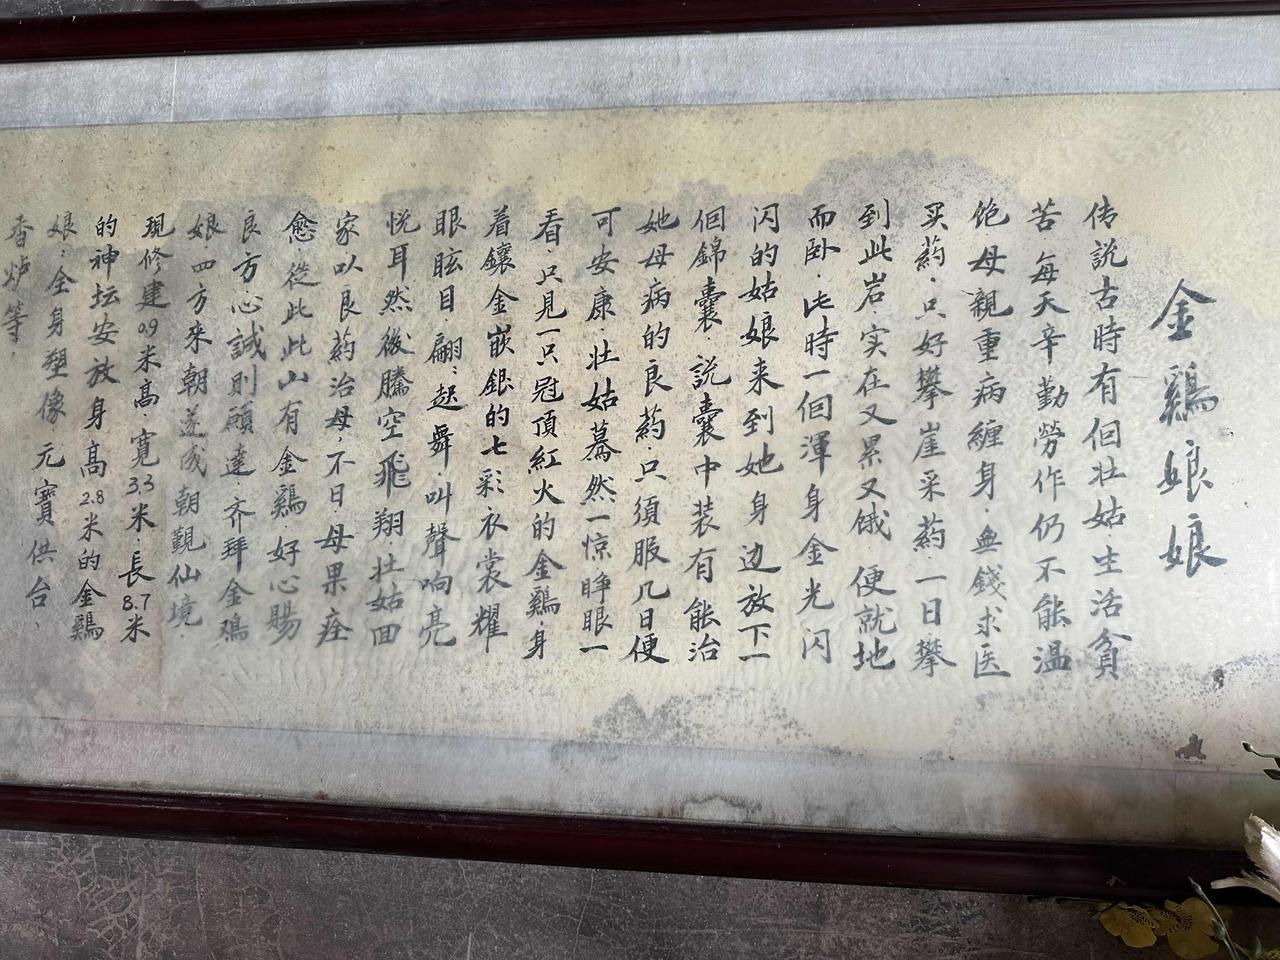 金鷄娘娘
传説古時有佪壮姑·生活貧
苦 每天辛勤勞作仍不能温
饱·母親重病纏身·無錢求医
买药·只好攀崖采药一日攀
到此岩·实在又累又饿·便就地
而卧·此時一佪渾身金光闪
闪的姑娘来到她身边放下一
佪錦囊·説囊中装有能治
她母病的良药·只須服几日便
可安康·壮姑驀然一惊睁眼一
看·只見一只冠頂紅火的金鷄·身
着鑲金嵌銀的七彩衣裳耀
眼眩目 翩翩起舞叫聲响亮
悦耳然後騰空飛翔壮姑回
家以良药治母·不日母果痊
愈 從此此山有金鷄·好心賜
良方·心誠則願達·齐拜金鷄
娘 四方来朝遂成朝觀仙境·
現修建0.9米高 寬3.3米·長8.7米
的神坛安放身高2.8米的金鷄
娘娘全身塑像 元寶供台、
香炉等·